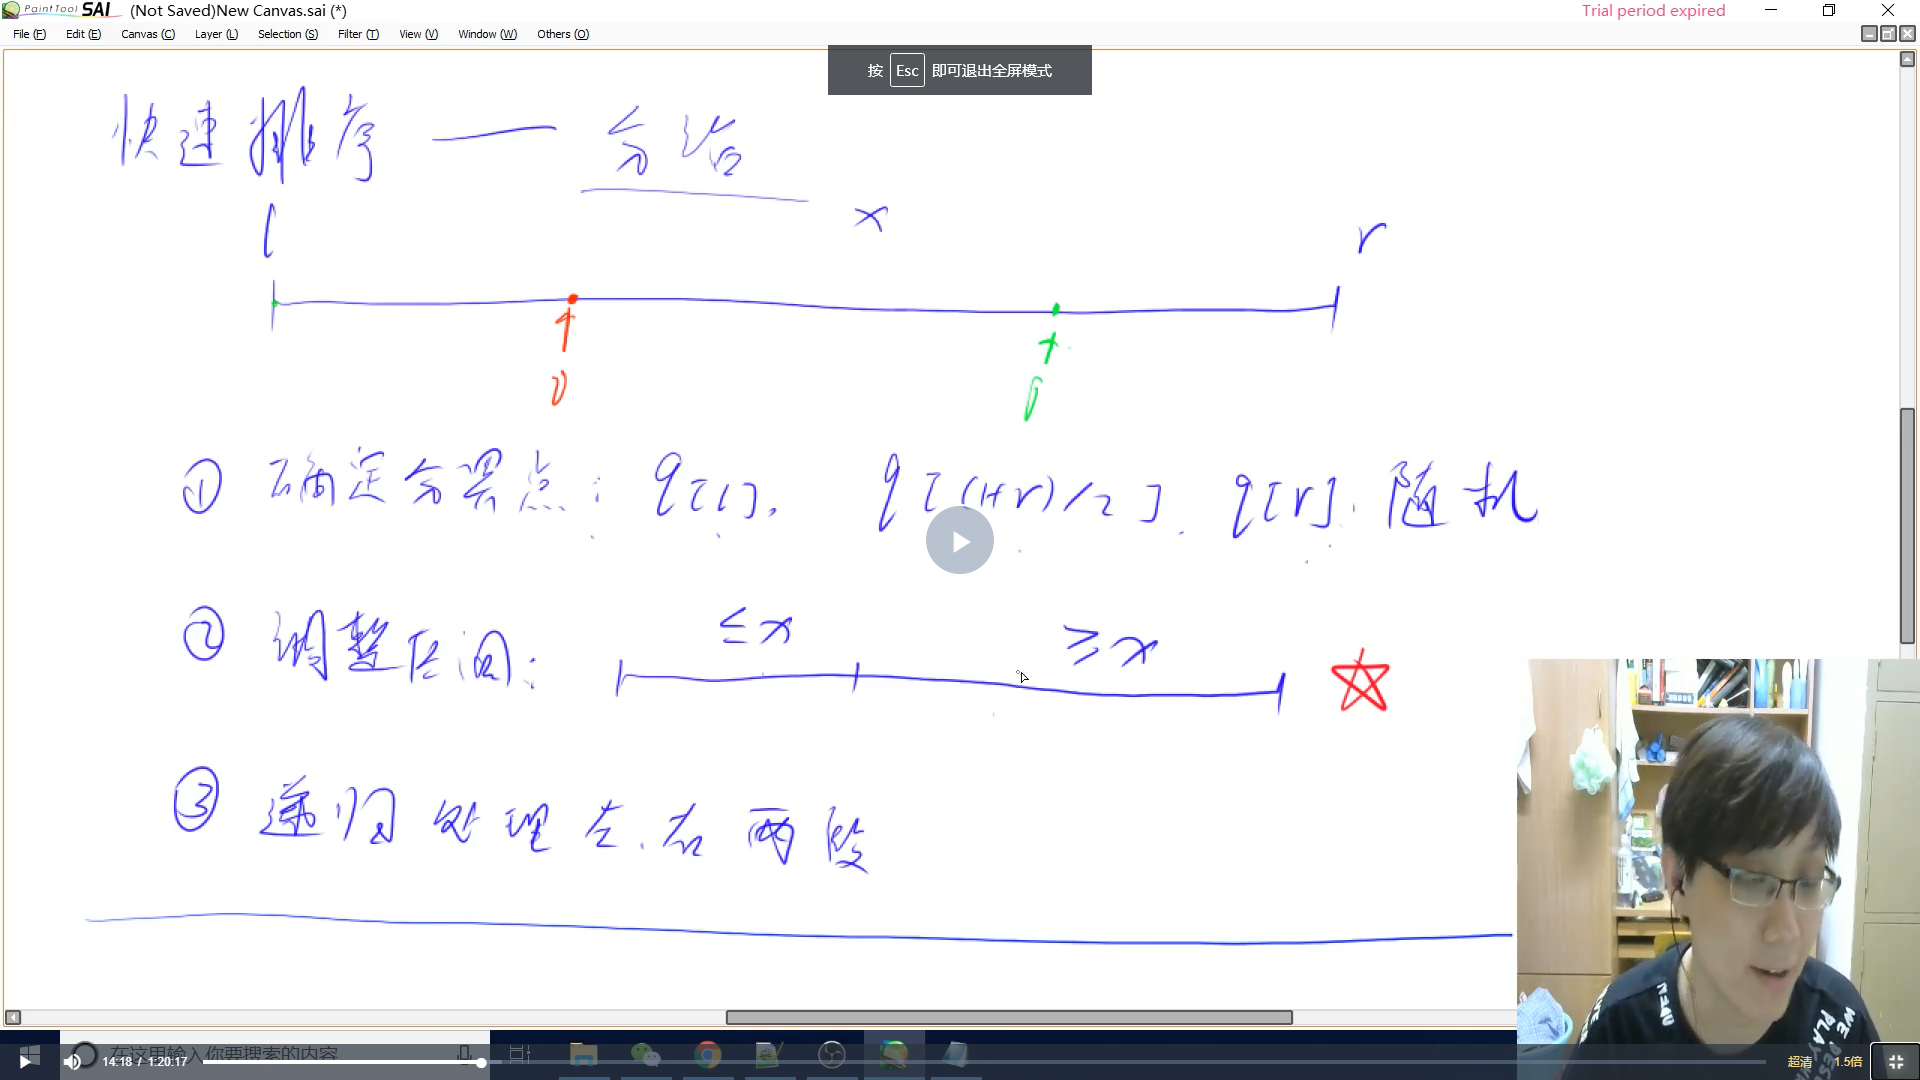 PaintTool SAI (Not Saved)New Canvas.sai (*) Trial period expired
File (F) Edit (E) Canvas (C) Layer (L) Selection (S) Filter (T) View (V) Window (W) Others (O)
按 Esc 即可退出全屏模式
快速排序 — 分治
l x r
① 确定分界点: q[l], q[(l+r)/2], q[r], 随机
② 调整区间: ≤x ≥x
③ 递归处理左、右两段
在这里输入你要搜索的内容
14:18 / 1:20:17 超清 1.5倍